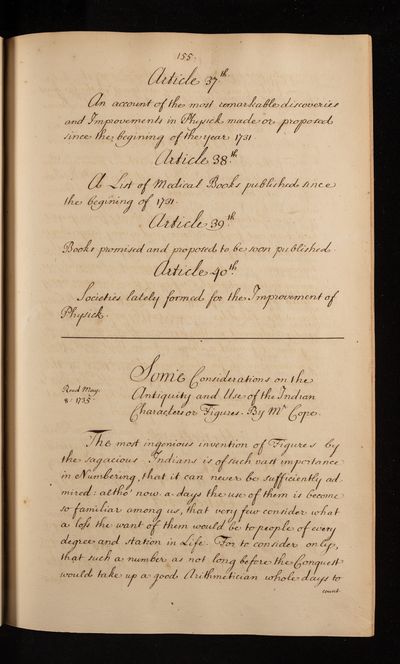 155.
Article 37th
An account of the most remarkable discoveries
and Improvements in Physick made or proposed
since the begining of the year 1731
Article 38th
A List of Medical Books published since
the begining of 1731.
Article 39th
Books promised and proposed to be soon published.
Article 40th
Societies lately formed for the Improvement of
Physick.
Some Considerations on the
Read May.
8. 1735
Antiquity and Use of the Indian
Characters or Figures. By Mr Cope.
The most ingenious invention of Figures by
the sagacious Indians is of such vast importance
in Numbering, that it can never be sufficiently ad
mired: altho' now a days the use of them is become
so familiar among us, that very few consider what
a loss the want of them would be to people of every
degree and station in Life. For to consider only,
that such a number as not long before the Conquest
would take up a good Arithmetician whole days to
count